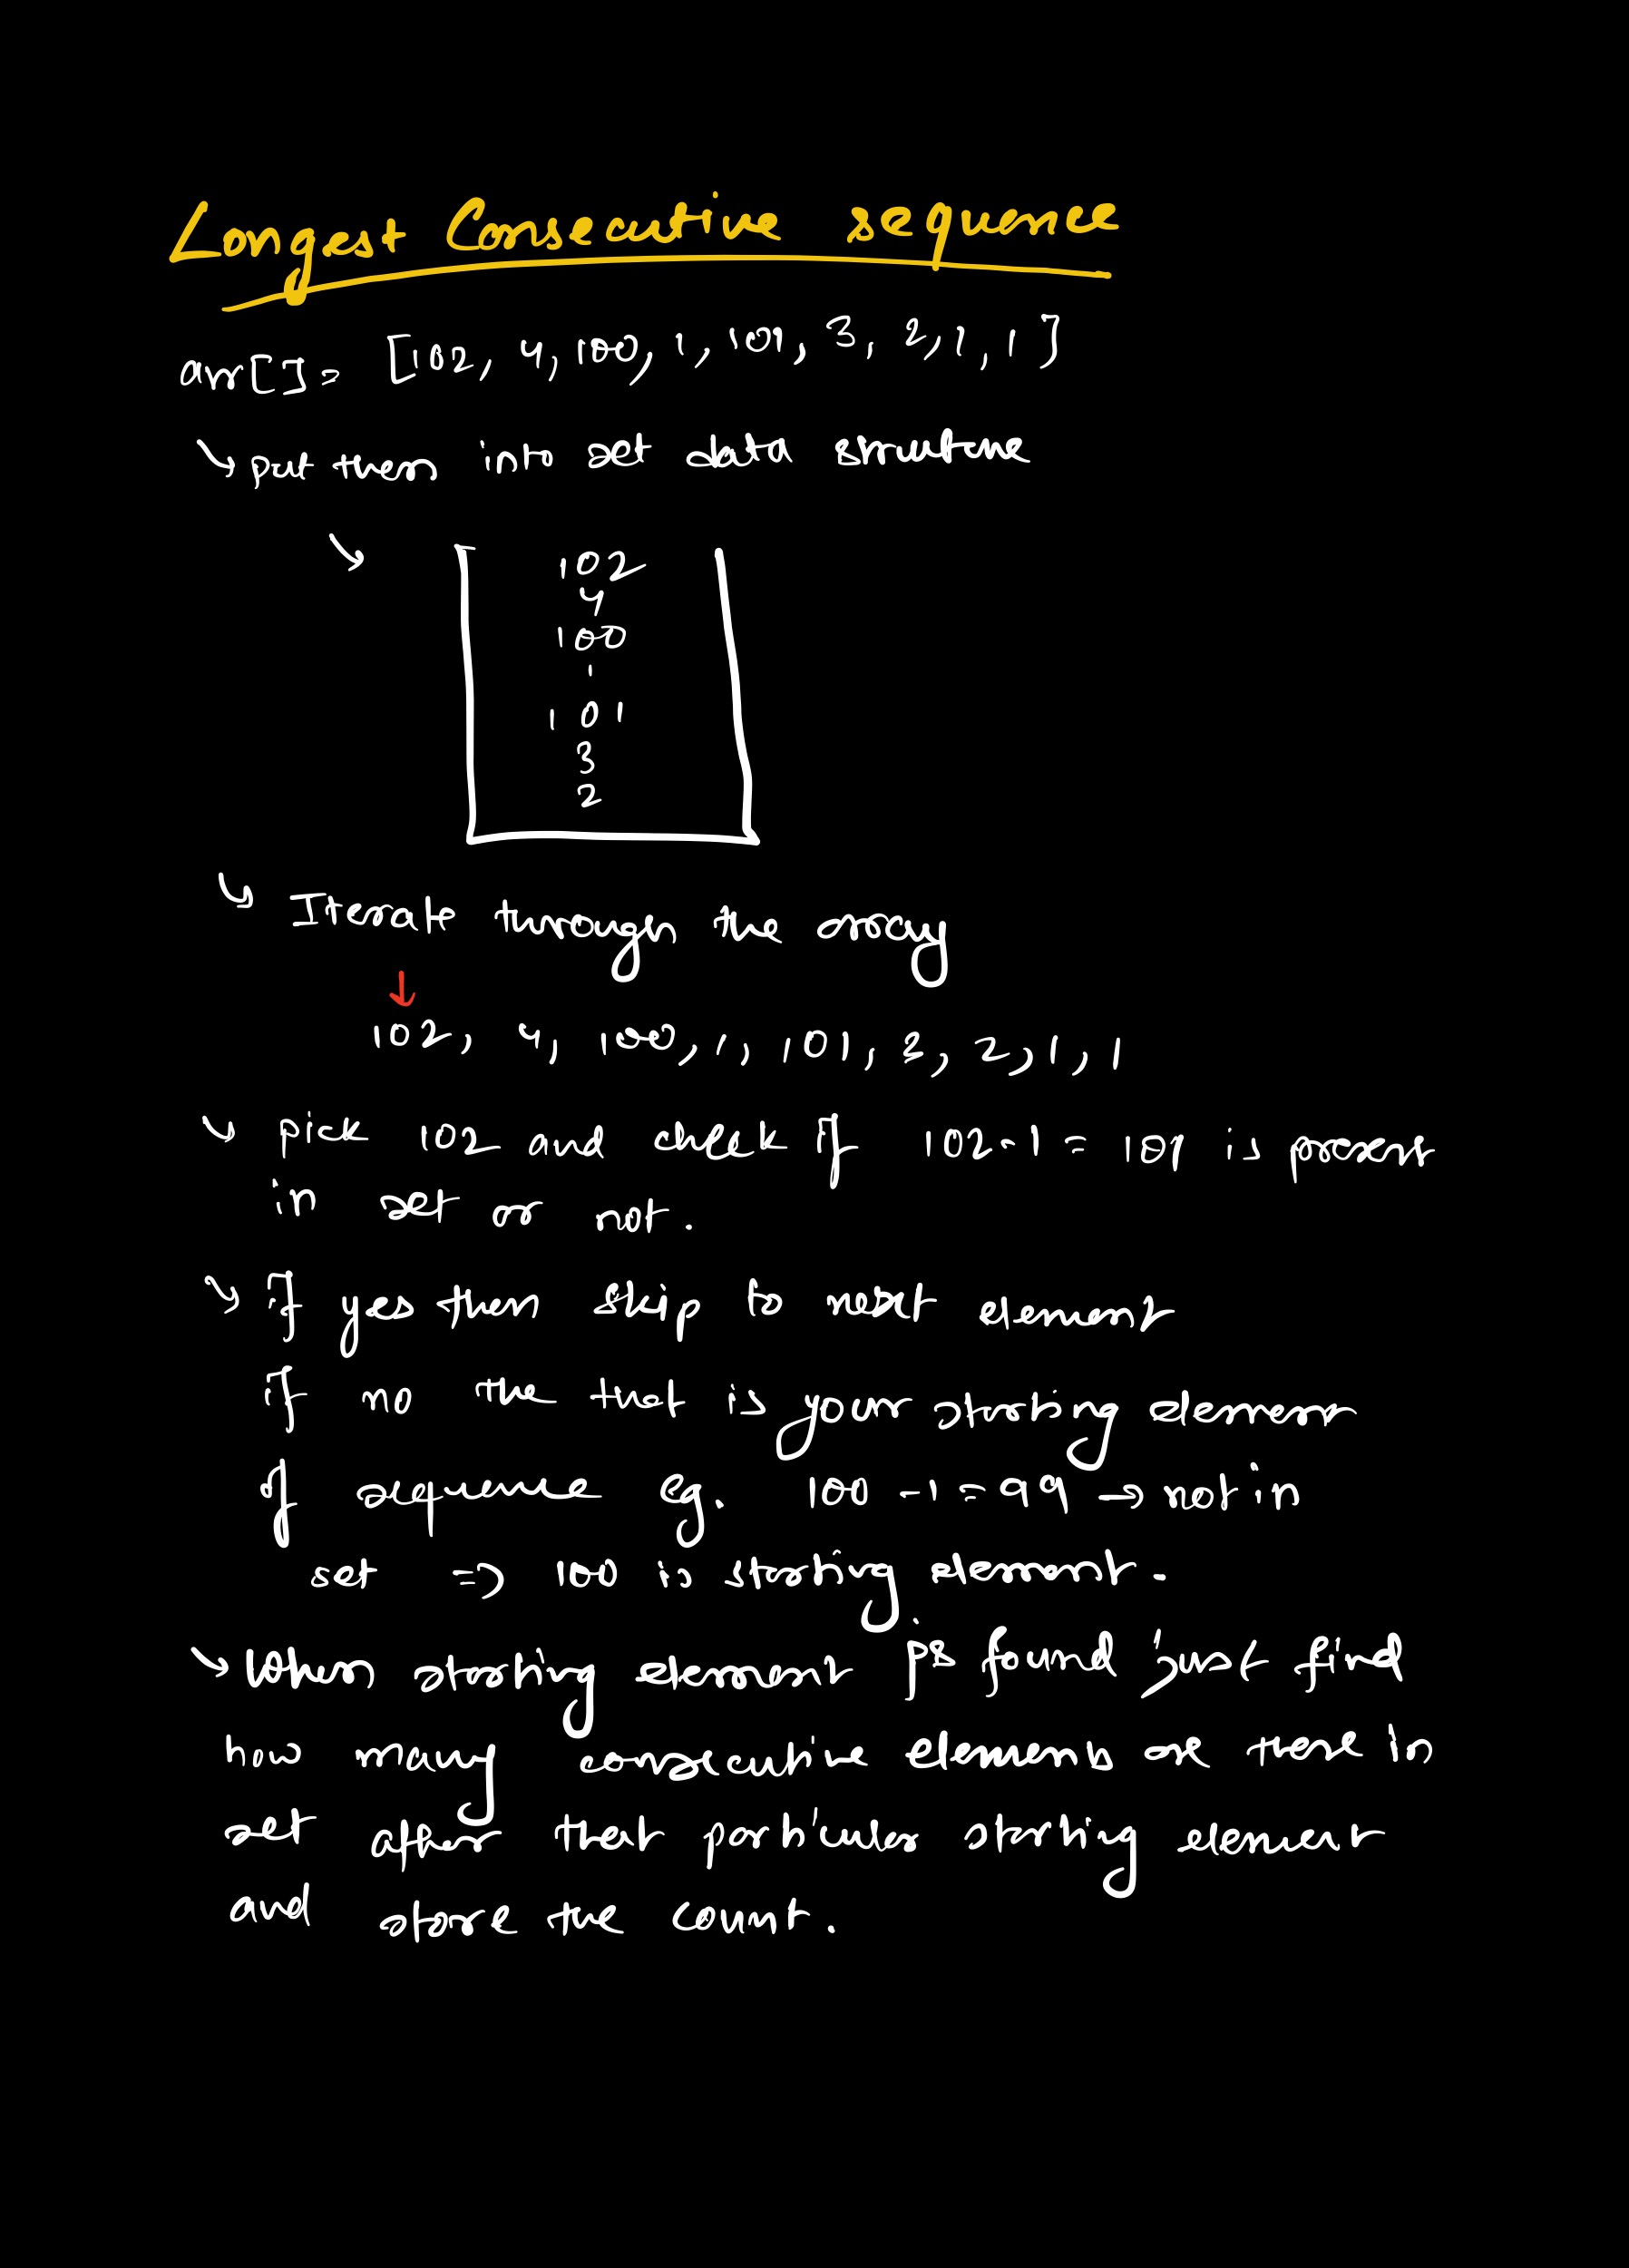 Longest Consecutive sequence
arr[] = [102, 4, 100, 1, 101, 3, 2, 1, 1]
put them into set data structure
102
4
100
1
101
3
2
Iterate through the array
102, 4, 100, 1, 101, 3, 2, 1, 1
pick 102 and check if 102-1 = 101 is present
in set or not.
if yes then skip to next element
if no the that is your starting element
of sequence eg. 100 -1 = 99 → not in
set => 100 is starting element.
When starting element is found just find
how many consecutive elements are there in
set after that particular starting element
and store the count.